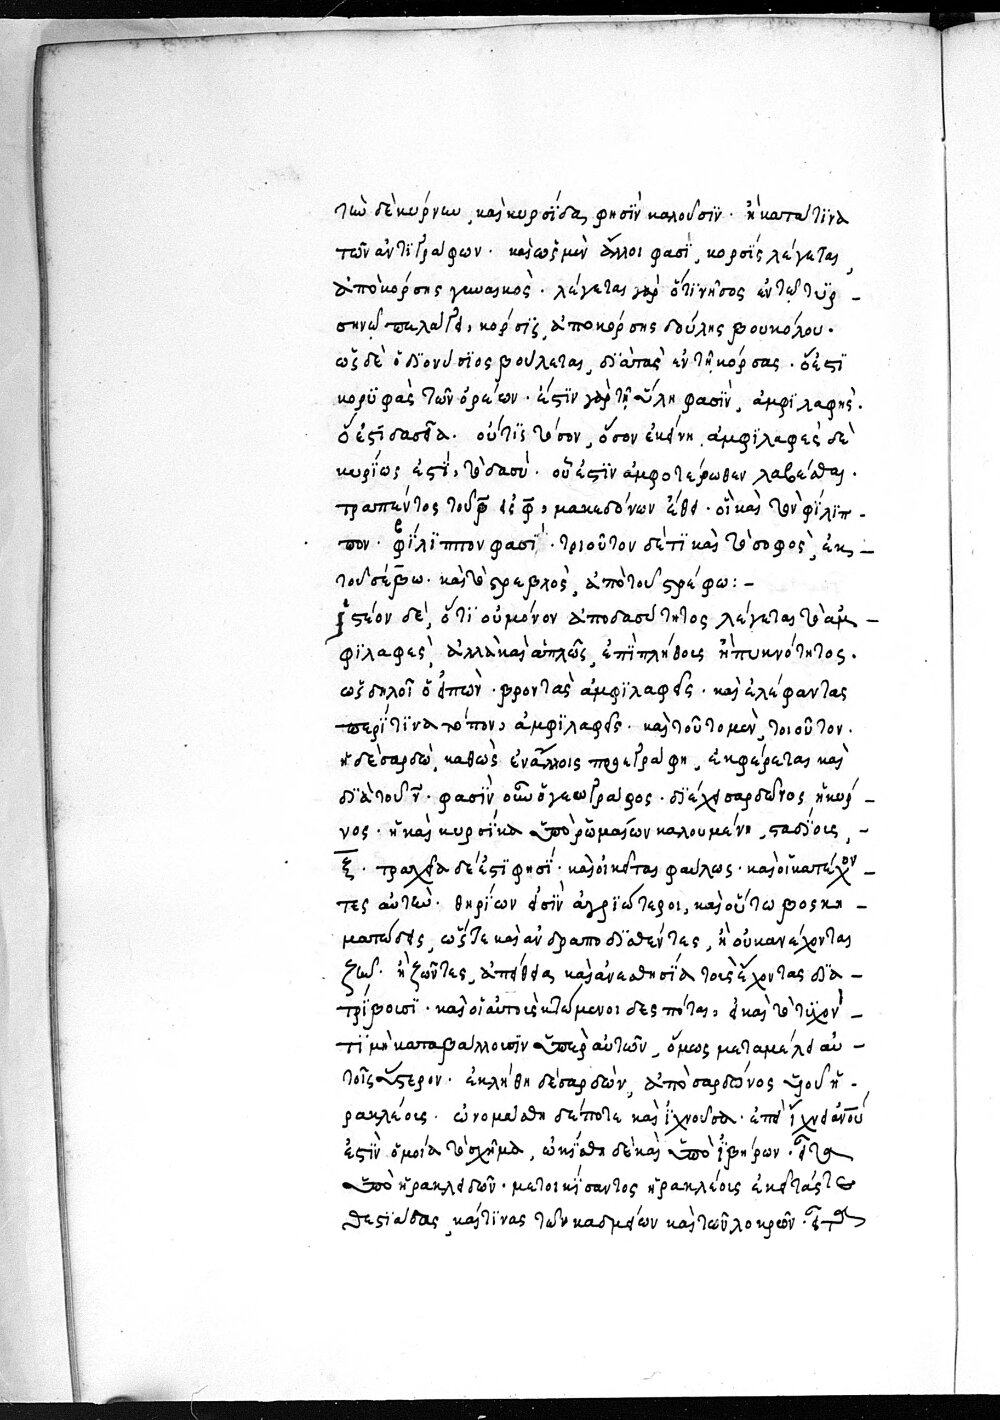 τὴν δὲ κύρνον, καὶ κυρσίδα, φησὶν καλοῦσϊν · ἢ κατατϊνα
τῶν αντϊγράφων · καὶ ὡς μὲν ἄλλοι φασὶ, κορσὶς λέγεται,
ἀπὸ κόρσης γυναικὸς · λέγεται γὰρ ὅτϊ νῆσος ἐν τῷ τυρ –
σηνῷ πελάγει, κορσὶς, ἀπὸ κόρσης δούλης βουκόλου ·
ὡς δὲ ὁ διονύσιος βούλεται, διὰ τὰς ἐν τῇ κόρσας · ὅ ἐστὶ
κορυφὰς τῶν ὀρέων · ἔστϊν γὰρ τῇ ὕλη φασὶν, ἀμφιλαφὴς ·
ὅ ἐστὶ δασεῖα · οὔτις τόσον, ὅσον ἐκείνη, ἀμφιλαφὲς δὲ
κυρίως ἐστὶ, τὸ δασὺ · οὗ ἐστὶν ἀμφοτέρωθεν λαβέσθαι ·
τραπέντος τοῦ β εἰς φ, μακεδόνων ἔθει · οἳ καὶ τὸν φίλιπ –
πον · βίλιππον φασὶ · τοιοῦτον δέ τϊ καὶ τὸ σοφὸς, ἐκ –
τοῦ σέβω · καὶ τὸ στρεβλὸς, ἀπὸ τοῦ στρέφω : –
ἰστέον δὲ, ὅτϊ οὐ μόνον ἀπὸ δασύτητος λέγεται τὸ ἀμ –
φιλαφὲς, ἀλλὰ καὶ ἁπλῶς, ἐπὶ πλήθους ἢ πυκνότητος ·
ὡς δηλοῖ ὁ εἰπὼν · βροντὰς ἀμφιλαφεῖς · καὶ ἐλέφαντας
περί τϊνα τόπον, ἀμφιλαφεῖς · καὶ τοῦτο μὲν, τοιοῦτον ·
ἡ δὲ σαρδὼ, καθὼς ἐν ἄλλοις προεγράφη, ἐκφέρεται καὶ
διὰ τοῦ ν · φασὶν οὖν ὁ γεωγράφος · διέχει σαρδόνος ἡ κύρ –
νος · ἡ καὶ κυρσϊκα ὑπὸ ῥωμαίων καλουμένη, σταδίοις, –
ξ · τραχεῖα δέ ἐστϊ φησὶ · καὶ οἰκεῖται φαύλως · καὶ οἱ κατέχον –
τες αὐτὴν · θηρίων εἰσὶν ἀγριώτεροι, καὶ οὕτω βοσκη –
ματώδεις, ὥστε καὶ ἀνδραποδισθέντες, ἢ οὐκ ἀνέχονται
ζῆν · ἢ ζῶντες, ἀπαθείᾳ καὶ ἀναισθησίᾳ τοὺς ἔχοντας δια –
τρίβουσϊ · καὶ οἱ αὐτοὺς κτώμενοι δεσπόται, εἰ καὶ τὸ τυχὸν –
τϊ μὴ καταβάλλουσϊν ὑπὲρ αὐτῶν, ὅμως μεταμέλει αὐ –
τοῖς ὕστερον · ἐκλήθη δὲ σαρδὼν, ἀπὸ σαρδόνος υἱοῦ ἡ –
ρακλέοις · ὠνομάσθη δέ ποτε καὶ ἰχνοῦσα · ἐπεὶ ἴχνει ἀνοῦ
ἐστὶν ὅμοια τὸ σχῆμα, ὠκίσθη δὲ καὶ ὑπὸ ἰβήρων · εἶτα
ὑπὸ ἡρακλειδῶν · μετοικήσαντος ἡρακλέοις ἐκεῖ τὰς τε
θεσϊάδας, καί τινας τῶν καδμείων καὶ τῶν λοκρῶν · εἶτα